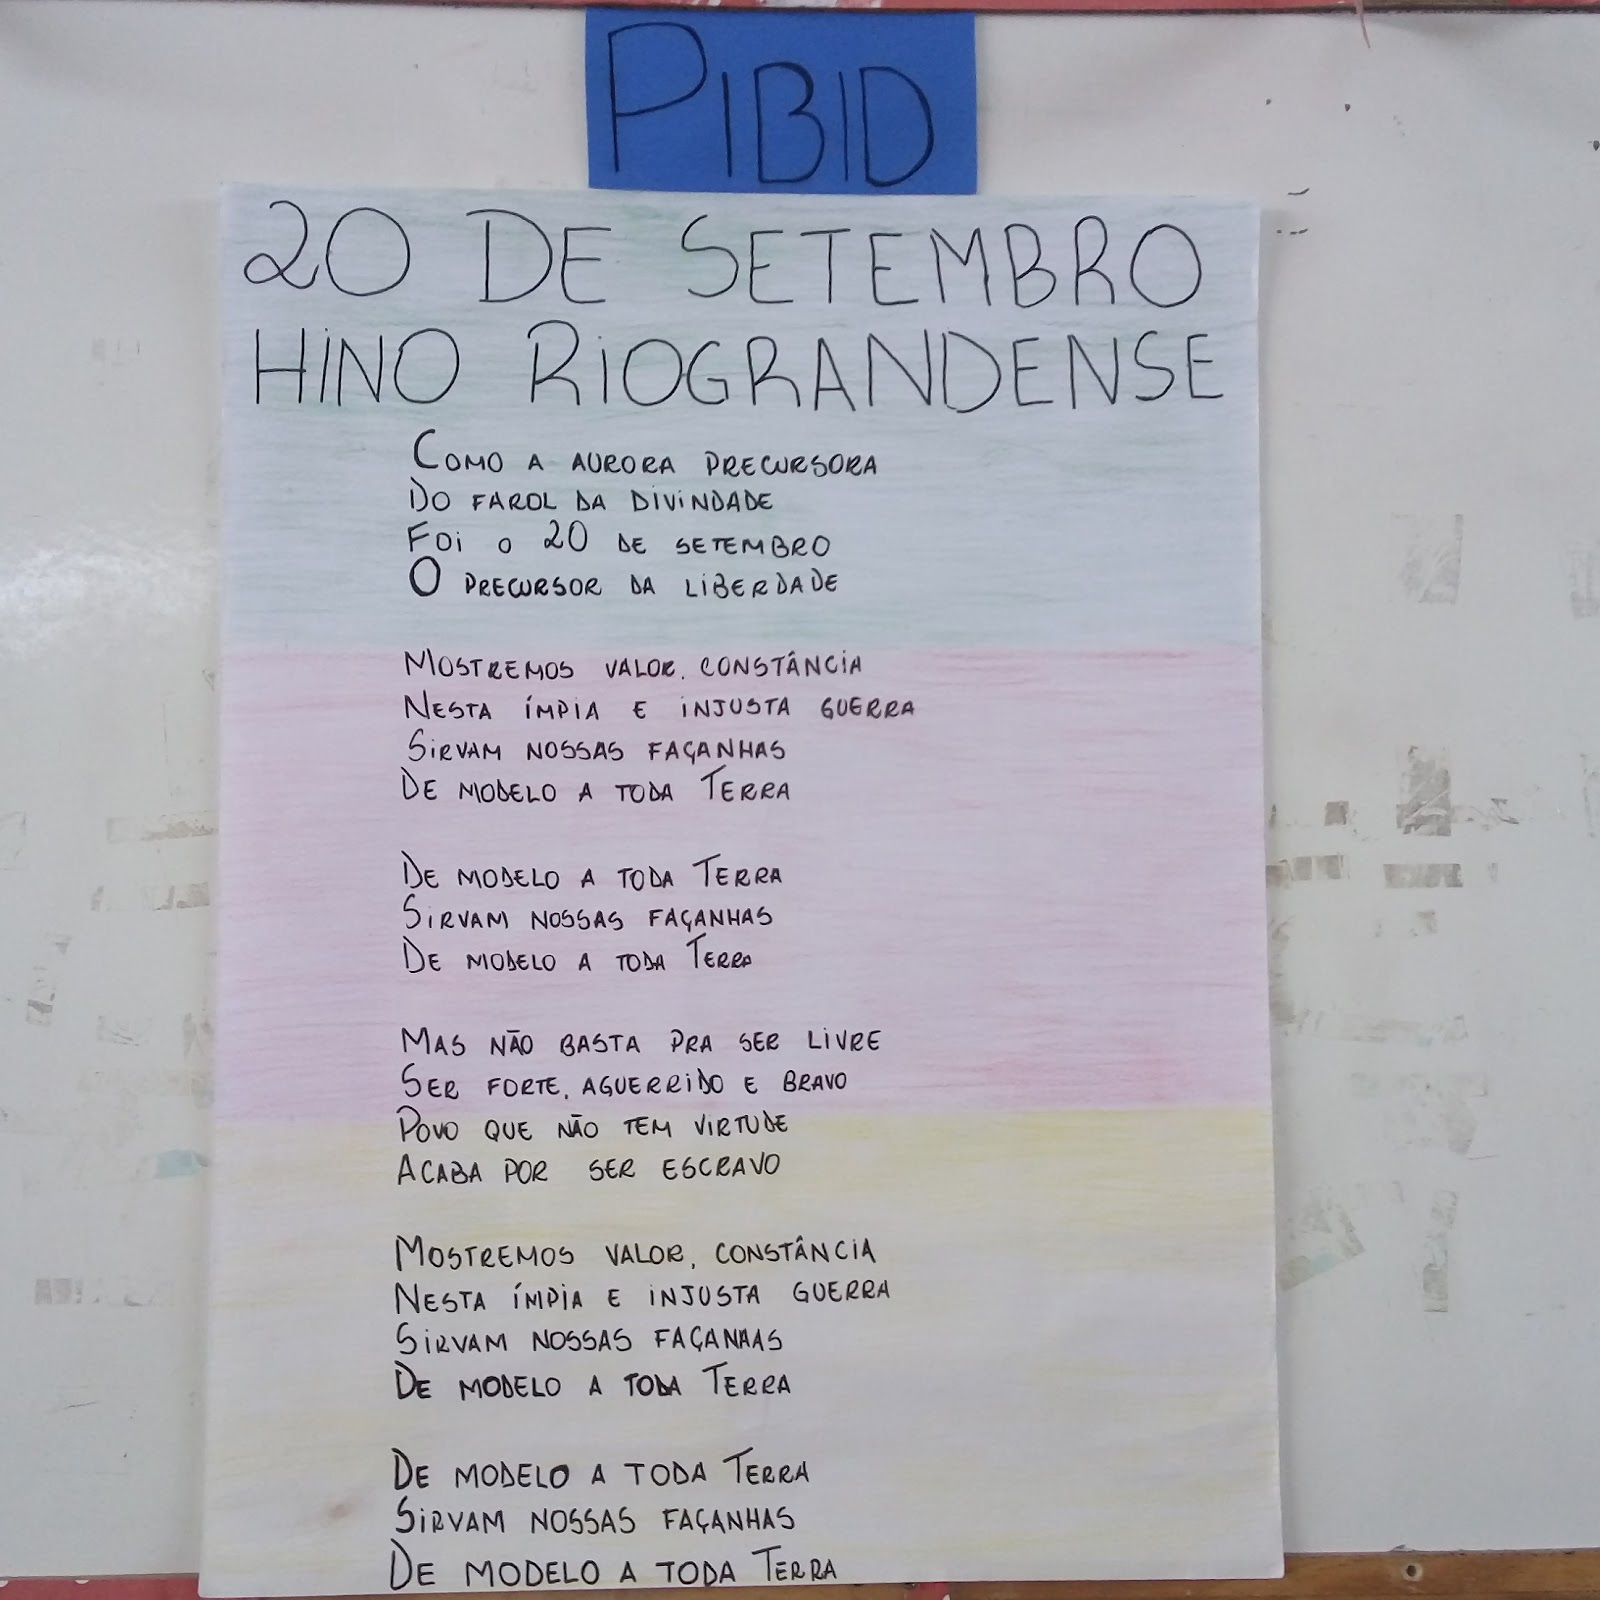 PIBID
20 DE SETEMBRO
HINO RIOGRANDENSE
COMO A AURORA PRECURSORA
DO FAROL DA DIVINDADE
FOI O 20 DE SETEMBRO
O PRECURSOR DA LIBERDADE
MOSTREMOS VALOR, CONSTÂNCIA
NESTA ÍMPIA E INJUSTA GUERRA
SIRVAM NOSSAS FAÇANHAS
DE MODELO A TODA TERRA
DE MODELO A TODA TERRA
SIRVAM NOSSAS FAÇANHAS
DE MODELO A TODA TERRA
MAS NÃO BASTA PRA SER LIVRE
SER FORTE, AGUERRIDO E BRAVO
POVO QUE NÃO TEM VIRTUDE
ACABA POR SER ESCRAVO
MOSTREMOS VALOR, CONSTÂNCIA
NESTA ÍMPIA E INJUSTA GUERRA
SIRVAM NOSSAS FAÇANHAS
DE MODELO A TODA TERRA
DE MODELO A TODA TERRA
SIRVAM NOSSAS FAÇANHAS
DE MODELO A TODA TERRA